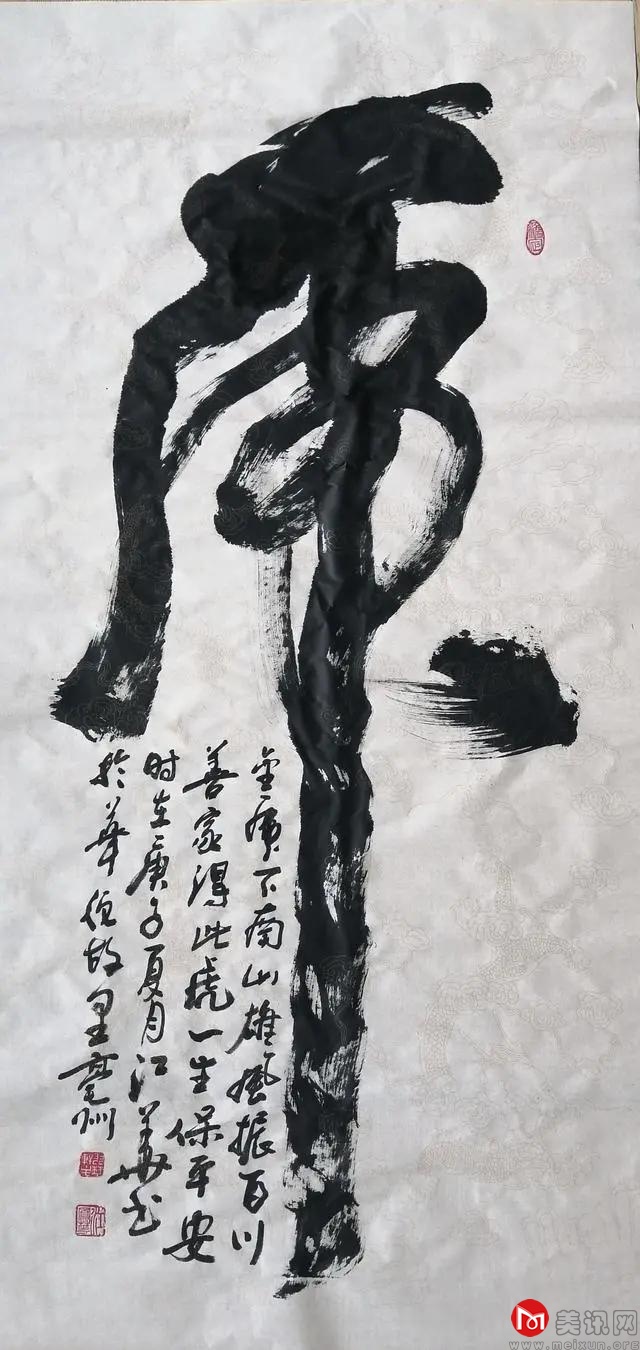 虎
金虎下南山雄风振百川
善家得此虎一生保平安
时在庚子夏月江华书
於华佗故里亳州
美讯网
www.meixun.org